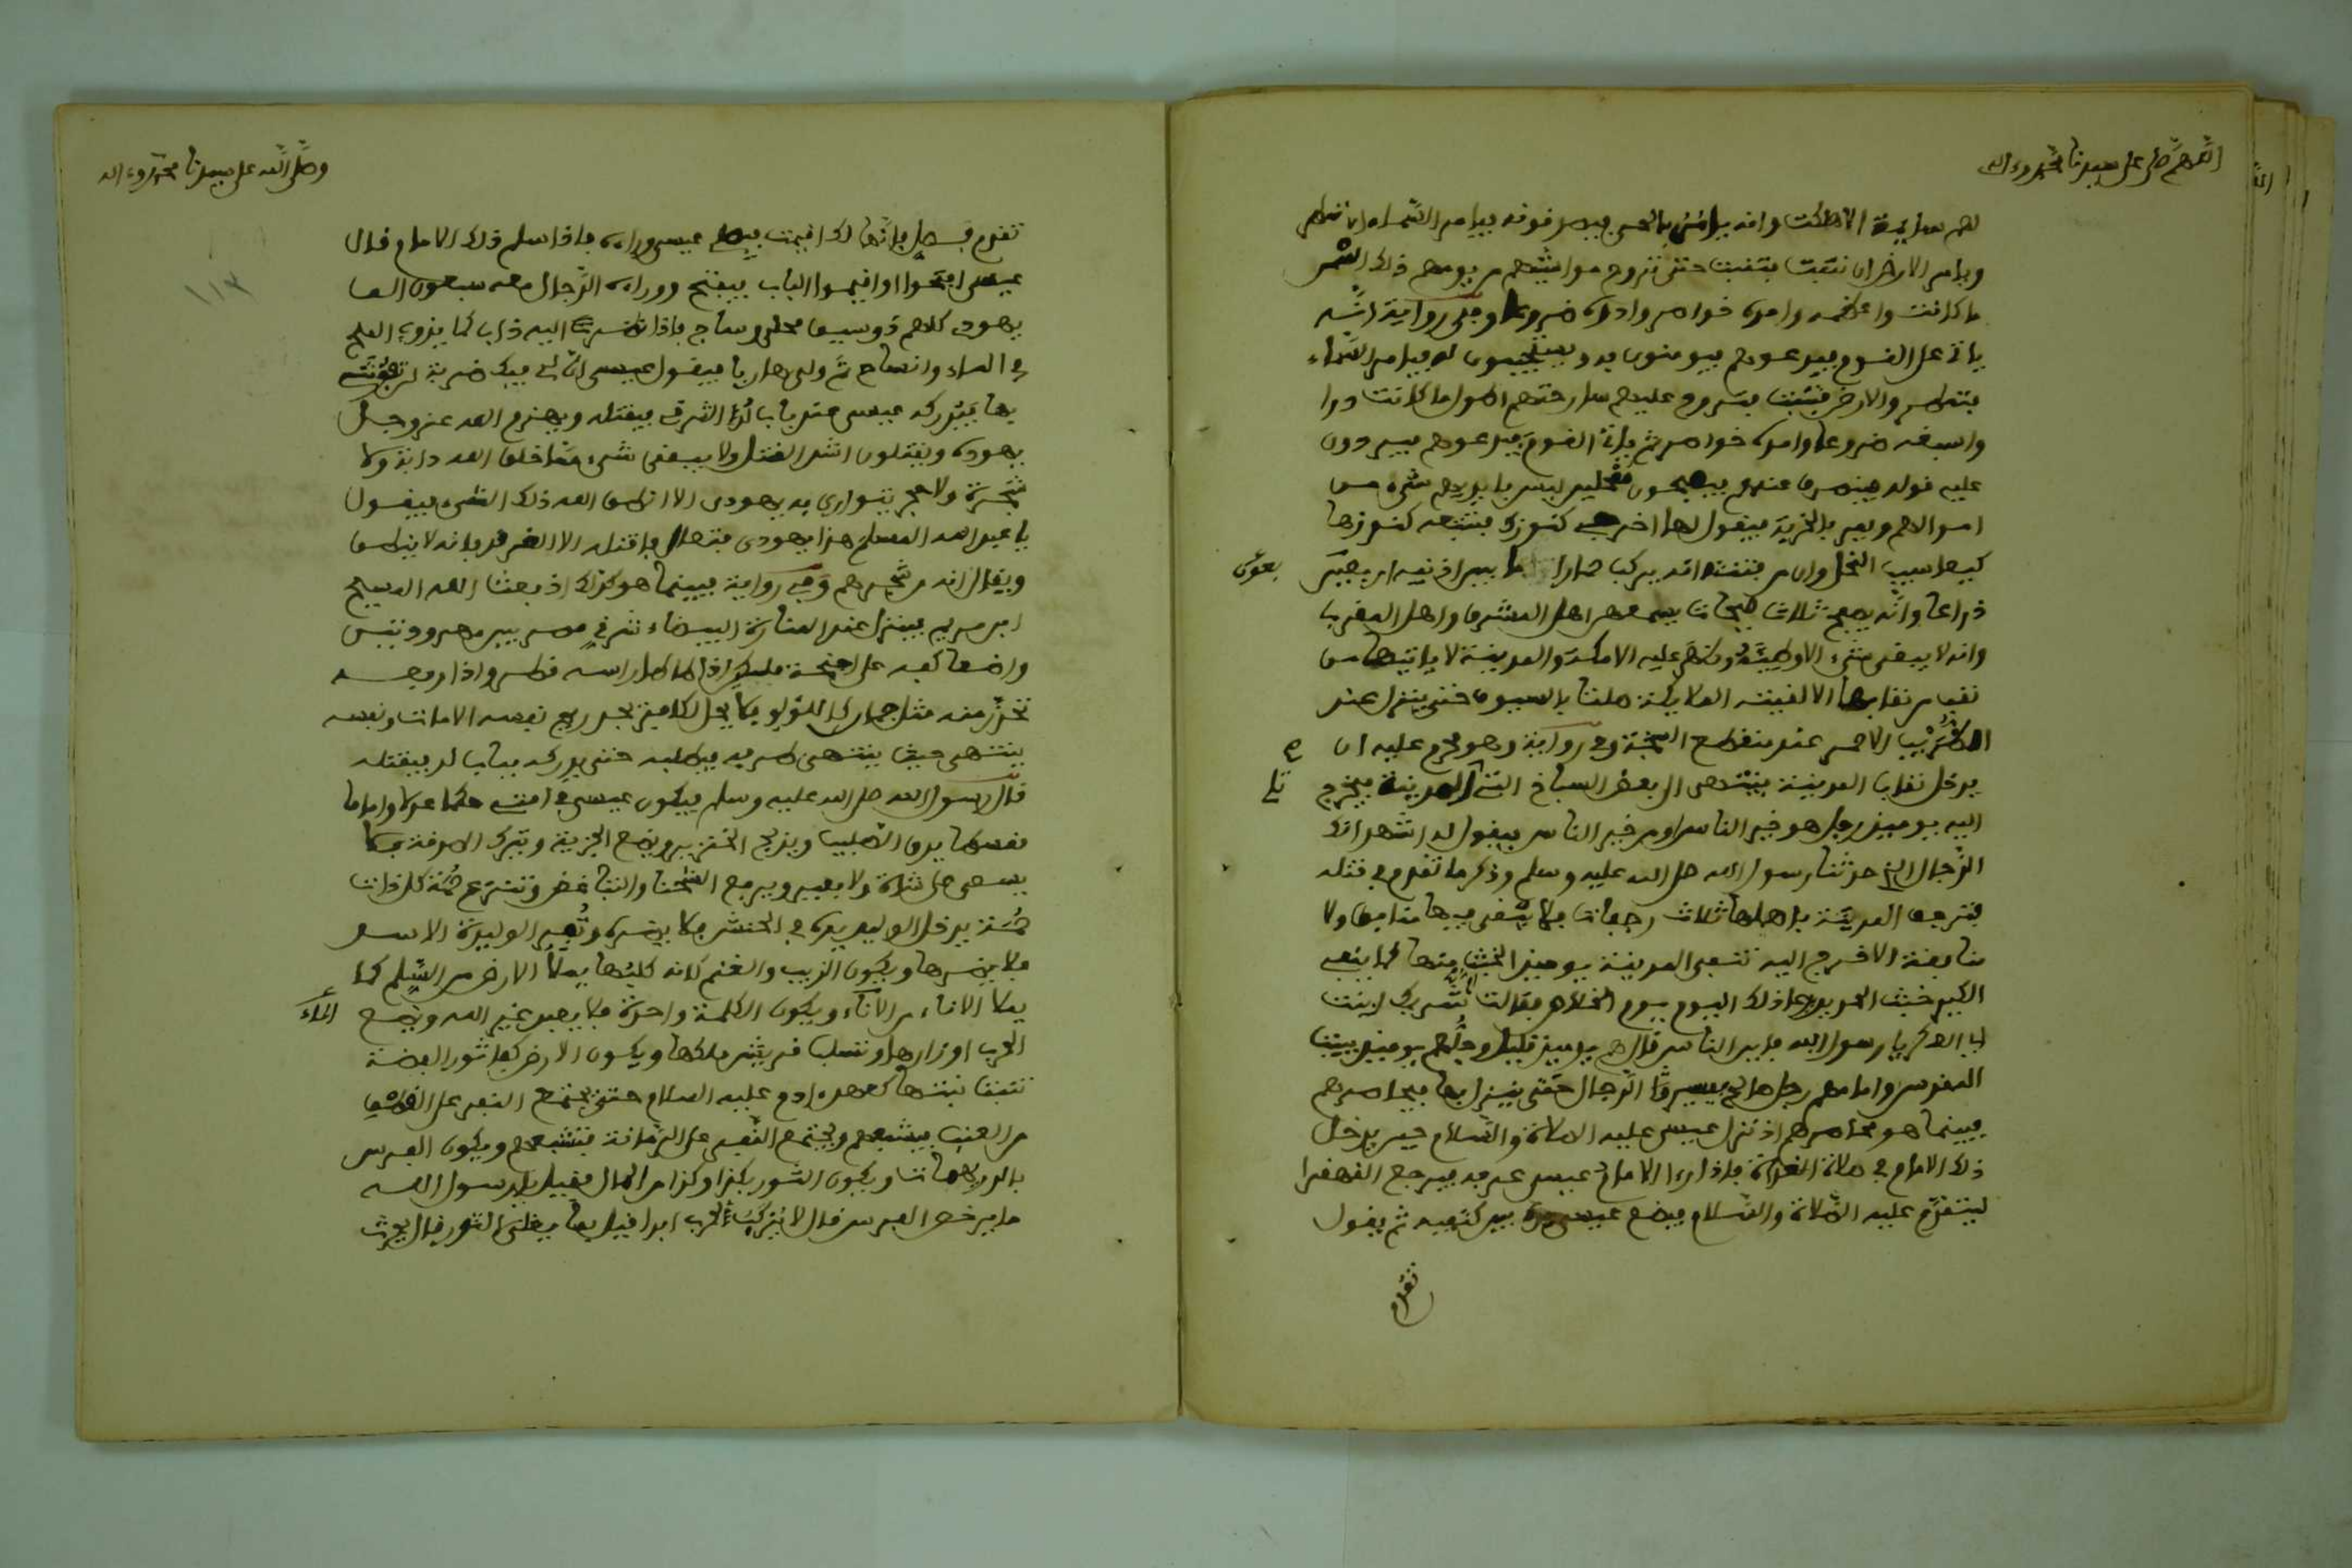 اللهم صل على سيدنا محمد وءاله
لهم سايمة الا هلكت وانه يامر السماء ان تمطر
ويامر الارض ان تنبت فتنبت حتى تروح مواشيهم من يومهم ذلك اسمن
ما كانت واعظمه وامده خواصر وادره ضروعا وفي رواية انه
ياتي على القوم فيدعوهم فيومنون به ويستجيبون له فيامر السماء
فتمطر والارض فتنبت فتروح عليهم سارحتهم اطول ما كانت درا
واسبغه ضروعا وامده خواصر ثم ياتي القوم فيدعوهم فيردون
عليه قوله فينصرف عنهم فيصبحون ممحلين ليس بايديهم شيء من
اموالهم ويمر بالخربة فيقول لها اخرجي كنوزك فتتبعه كنوزها
كيعاسيب النحل وان من فتنته انه يركب حمارا ما بين اذنيه اربعون
ذراعا وانه يصيح ثلاث صيحات يسمعهن اهل المشرق واهل المغرب
وانه لا يبقى شيء الا وطئه وظهر عليه الا مكة والمدينة لا ياتيهما من
نقب من نقابها الا لقيته الملايكة صلتا بالسيوف حتى ينزل عند
الظريب الاحمر عند منقطع السبخة وفي رواية وهو محرم عليه ان
يدخل نقاب المدينة فينتهي الى بعض السباخ التي تلي المدينة فيخرج
اليه يوميذ رجل هو خير الناس او من خير الناس فيقول له اشهد انك
الدجال الذي حدثنا رسول الله صلى الله عليه وسلم وذكر ما تقدم في قتله
فترجف المدينة باهلها ثلاث رجفات فلا يبقى فيها منافق ولا
منافقة الا خرج اليه تنفي المدينة يوميذ الخبث منها كما ينفي
الكير خبث الحديد يدعا ذلك اليوم يوم الخلاص فقالت ام شريك ابنت
ابي العكر يا رسول الله فاين الناس قال هم يوميذ قليل وجلهم يوميذ ببيت
المقدس وامامهم رجل صالح فيسير الدجال حتى ينزل بها فيحاصرهم
فبينما هو محاصرهم اذ نزل عيسى عليه الصلاة والسلام حين يدخل
ذلك الامام في صلاة الغداة فاذا راى الامام عيسى عرفه فيرجع القهقرا
ليتقدم عليه الصلاة والسلام فيضع عيسى يده بين كتفيه ثم يقول
تقدم
وصلى الله على سيدنا محمد وءاله
١١٣
تقدم فصل فانها لك اقيمت فيصلي عيسى وراءه فاذا سلم ذلك الامام قال
عيسى افتحوا او اقيموا الباب فيفتح ووراءه الدجال معه سبعون الف
يهودي كلهم ذو سيف محلى وساج فاذا نظر اليه ذاب كما يذوب الملح
في الماء وانساح ثم ولى هاربا فيقول عيسى ان لي فيك ضربة لن تفوتني
بها فيدركه عيسى عند باب لد الشرقي فيقتله ويهزم الله عز وجل
يهوده ويقتلون اشد القتل ولا يبقى شيء مما خلق الله دابة ولا
شجرة ولا حجر يتوارى به يهودي الا انطق الله ذلك الشيء فيقول
يا عبد الله المسلم هذا يهودي فتعال فاقتله الا الغرقد فانه لا ينطق
ويقال انه من شجرهم وفي رواية فبينما هو كذلك اذ بعث الله المسيح
ابن مريم فينزل عند المنارة البيضاء شرقي دمشق بين مهرودتين
واضعا كفيه على اجنحة ملكين اذا طاطا راسه قطر واذا رفعه
تحدر منه مثل جمان كاللؤلؤ فلا يحل لكافر يجد ريح نفسه الا مات ونفسه
ينتهي حيث ينتهي طرفه فيطلبه حتى يدركه بباب لد فيقتله
قال رسول الله صلى الله عليه وسلم فيكون عيسى في امتي حكما عدلا واماما
مقسطا يدق الصليب ويذبح الخنزير ويضع الجزية ويترك الصدقة فلا
يسعى على شاة ولا بعير ويرفع الشحنا والتباغض وتنزع حمة كل ذات
حمة يدخل الوليد يده في الحنش فلا يضره وتفر الوليدة الاسد
فلا يضرها ويكون الذيب والغنم كانه كلبها يملأ الارض من السلم كما
يملا الاناء من الماء ويكون الكلمة واحدة فلا يعبد غير الله ويضع
الحرب اوزارها وتسلب قريش ملكها ويكون الارض كفاثور الفضة
تنبت نبتها كعهد ادم عليه السلام حتى يجتمع النفر على القطف
من العنب فيشبعهم ويجتمع النفر على الرمانة فتشبعهم ويكون الفرس
بالدريهمات ويكون الثور بكذا وكذا من المال فقيل يا رسول الله
ما يرخص الفرس قال لا يركب لحرب ابدا قيل فما يغلي الثور قال يحرث